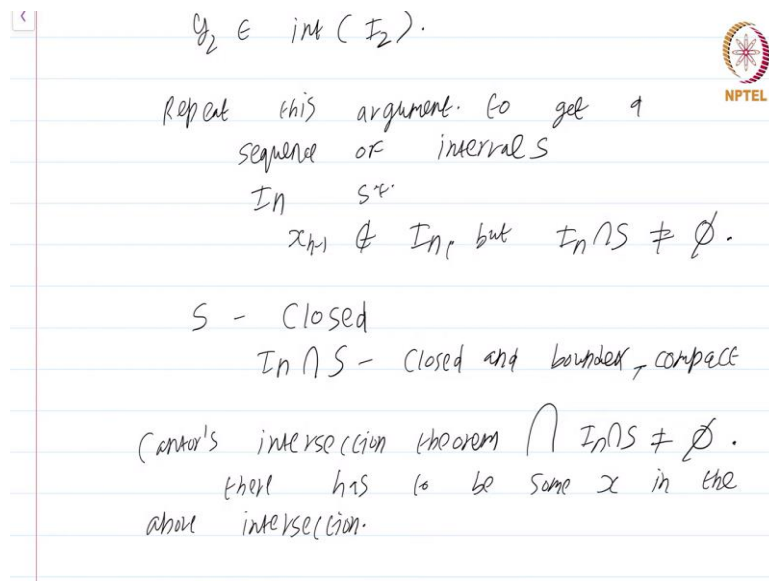 y₂ ∈ int (I₂).
NPTEL
Repeat this argument. to get a
sequence of intervals
Iₙ s.t.
xₙ₋₁ ∉ Iₙ, but Iₙ ∩ S ≠ ∅.
S - Closed
Iₙ ∩ S - Closed and bounded, compact
Cantor's intersection theorem ⋂ Iₙ ∩ S ≠ ∅.
there has to be some x in the
above intersection.